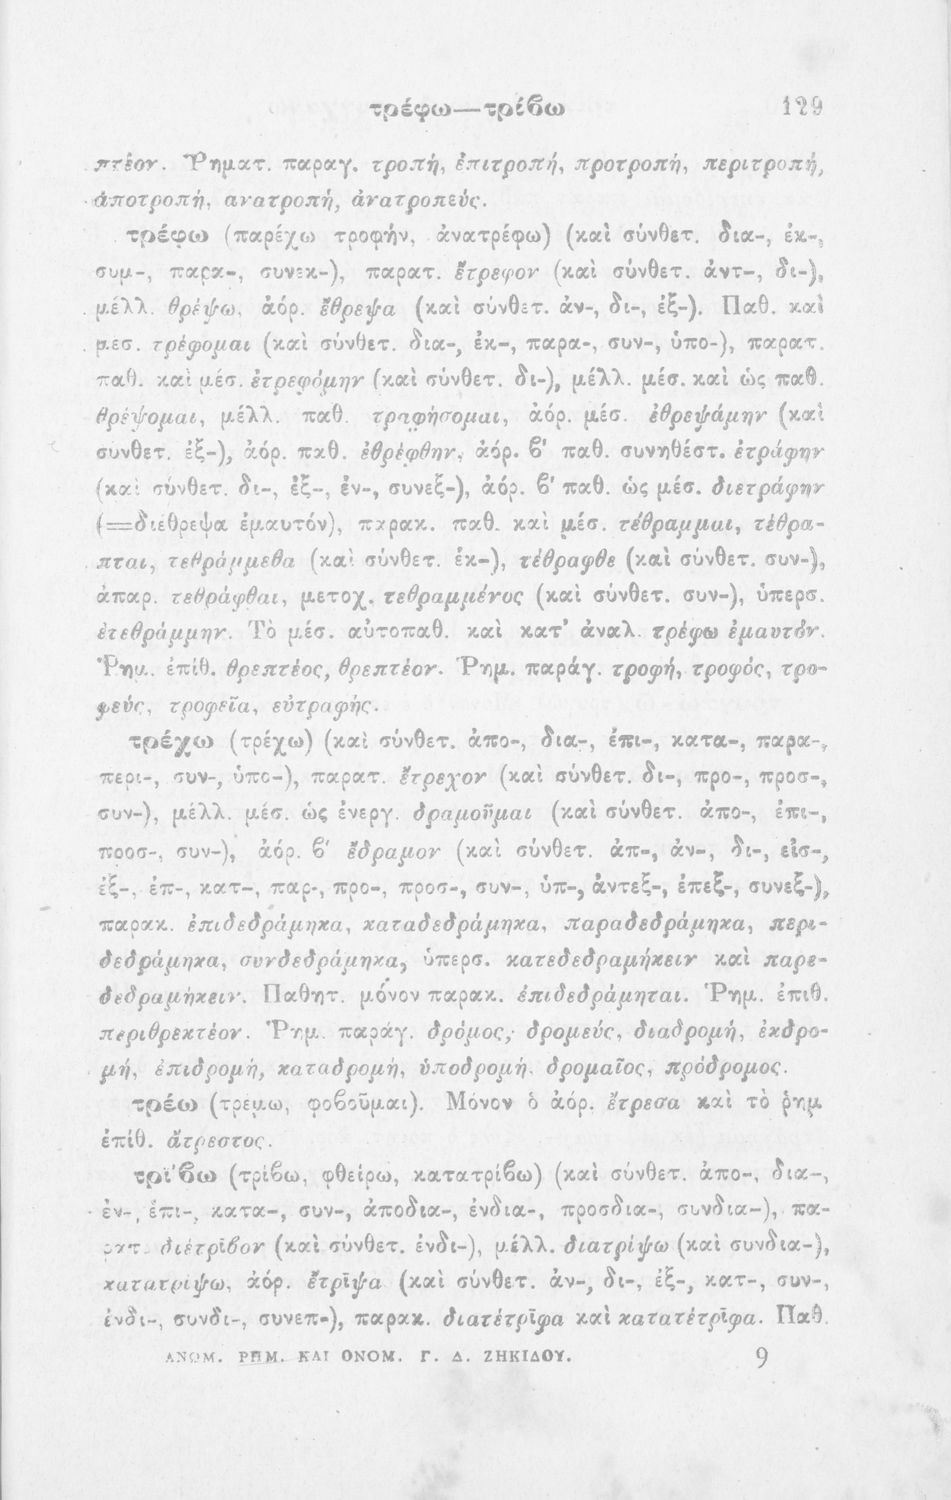 τρέφω—τρίβω 129
πτέον. Ῥηματ. παραγ. τροπή, ἐπιτροπή, προτροπή, περιτροπή,
ἀποτροπή, ανατροπή, ἀνατροπεύς.
τρέφω (παρέχω τροφήν, ἀνατρέφω) (καὶ σύνθετ. δια-, ἐκ-,
συμ-, παρα-, συνεκ-), παρατ. ἔτρεφον (καὶ σύνθετ. ἀντ-, δι-),
μέλλ. θρέψω, ἀόρ. ἔθρεψα (καὶ σύνθετ. ἀν-, δι-, ἐξ-). Παθ. καὶ
μεσ. τρέφομαι (καὶ σύνθετ. δια-, ἐκ-, παρα-, συν-, ὑπο-), παρατ.
παθ. καὶ μέσ. ἐτρεφόμην (καὶ σύνθετ. δι-), μέλλ. μέσ. καὶ ὡς παθ.
θρέψομαι, μέλλ. παθ. τραφήσομαι, ἀόρ. μέσ. ἐθρεψάμην (καὶ
σύνθετ. ἐξ-), ἀόρ. παθ. ἐθρέφθην, ἀόρ. β' παθ. συνηθέστ. ἐτράφην
(καὶ σύνθετ. δι-, ἐξ-, ἐν-, συνεξ-), ἀόρ. β' παθ. ὡς μέσ. διετράφην
(=διέθρεψα ἐμαυτόν), παρακ. παθ. καὶ μέσ. τέθραμμαι, τέθρα-
πται, τεθράμμεθα (καὶ σύνθετ. ἐκ-), τέθραφθε (καὶ σύνθετ. συν-),
ἀπαρ. τεθράφθαι, μετοχ. τεθραμμένος (καὶ σύνθετ. συν-), ὑπερσ.
ἐτεθράμμην. Τὸ μέσ. αὐτοπαθ. καὶ κατ' ἀναλ. τρέφω ἐμαυτόν.
Ῥημ. ἐπίθ. θρεπτέος, θρεπτέον. Ῥημ. παράγ. τροφή, τροφός, τρο-
φεύς, τροφεῖα, εὐτραφής.
τρέχω (τρέχω) (καὶ σύνθετ. ἀπο-, δια-, ἐπι-, κατα-, παρα-,
περι-, συν-, ὑπο-), παρατ. ἔτρεχον (καὶ σύνθετ. δι-, προ-, προσ-,
συν-), μέλλ. μέσ. ὡς ἐνεργ. δραμοῦμαι (καὶ σύνθετ. ἀπο-, ἐπι-,
προσ-, συν-), ἀόρ. β' ἔδραμον (καὶ σύνθετ. ἀπ-, ἀν-, δι-, εἰσ-,
ἐξ-, ἐπ-, κατ-, παρ-, προ-, προσ-, συν-, ὑπ-, ἀντεξ-, ἐπεξ-, συνεξ-),
παρακ. ἐπιδεδράμηκα, καταδεδράμηκα, παραδεδράμηκα, περι-
δεδράμηκα, συνδεδράμηκα, ὑπερσ. κατεδεδραμήκειν καὶ παρε-
δεδραμήκειν. Παθητ. μόνον παρακ. ἐπιδεδράμηται. Ῥημ. ἐπιθ.
περιθρεκτέον. Ῥημ. παράγ. δρόμος, δρομεύς, διαδρομή, ἐκδρο-
μή, ἐπιδρομή, καταδρομή, ὑποδρομή, δρομαῖος, πρόδρομος.
τρέω (τρέμω, φοβοῦμαι). Μόνον ὁ ἀόρ. ἔτρεσα καὶ τὸ ῥημ.
ἐπίθ. ἄτρεστος.
τρίβω (τρίβω, φθείρω, κατατρίβω) (καὶ σύνθετ. ἀπο-, δια-,
ἐν-, ἐπι-, κατα-, συν-, ἀποδια-, ἐνδια-, προσδια-, συνδια-), πα-
ρατ. διέτριβον (καὶ σύνθετ. ἐνδι-), μέλλ. διατρίψω (καὶ συνδια-),
κατατρίψω, ἀόρ. ἔτρῑψα (καὶ σύνθετ. ἀν-, δι-, ἐξ-, κατ-, συν-,
ἐνδι-, συνδι-, συνεπ-), παρακ. διατέτρῑφα καὶ κατατέτρῑφα. Παθ.
ΑΝΩΜ. ΡΗΜ. ΚΑΙ ΟΝΟΜ. Γ. Δ. ΖΗΚΙΔΟΥ. 9